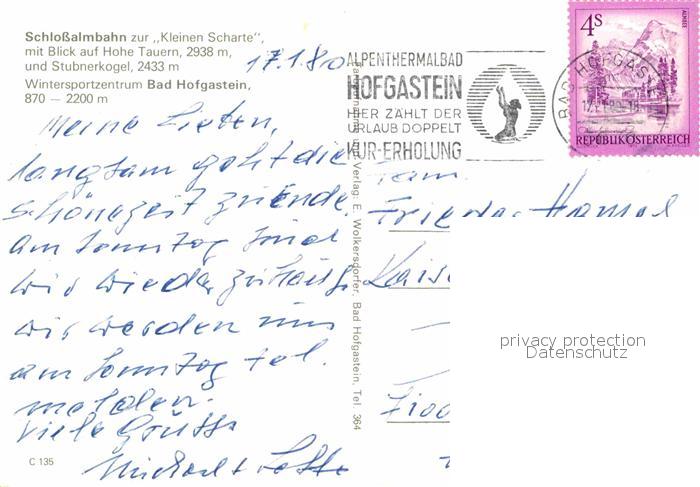 Schloßalmbahn zur „Kleinen Scharte",
mit Blick auf Hohe Tauern, 2938 m,
und Stubnerkogel, 2433 m
Wintersportzentrum Bad Hofgastein,
870 — 2200 m
17.1.80
Meine Lieben,
langsam geht die
schöne Zeit zu Ende.
Am Sonntag sind
wir wieder zuhause
wir werden uns
am Sonntag tel.
melden.
Viele Grüsse
Michael + Lotte
C 135
Verlag: E. Wolkersdorfer, Bad Hofgastein, Tel. 364
ALPENTHERMALBAD
HOFGASTEIN
HIER ZÄHLT DER
URLAUB DOPPELT
KUR-ERHOLUNG
BAD HOFGAS
4S
ALMSEE
REPUBLIK ÖSTERREICH
Fam.
Frieder Hamel
Kais
privacy protection
Datenschutz